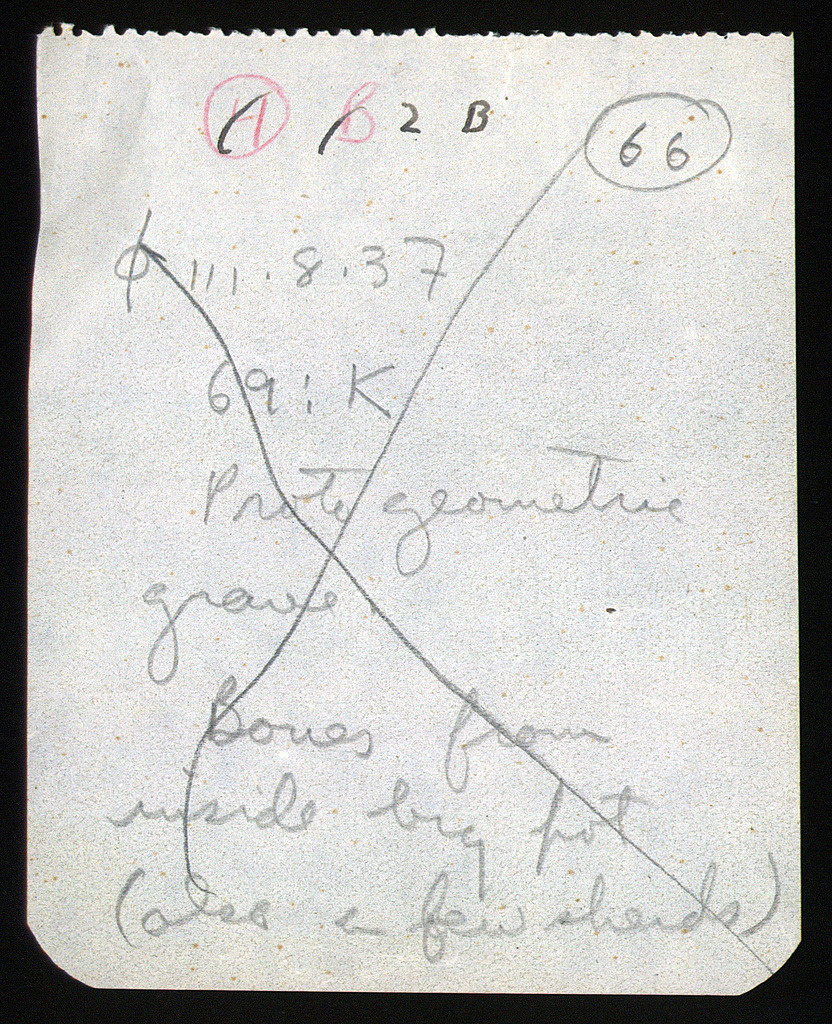 H B 2 B 66
ϕ III.8.37
69:K
Proto geometric
grave.
Bones from
inside big pot
(also a few sherds)